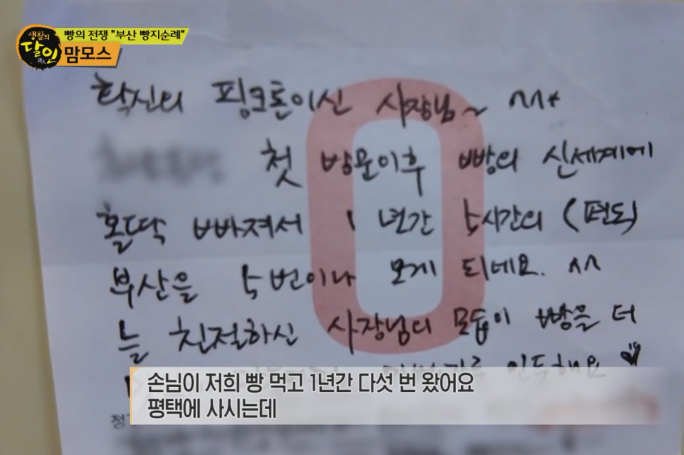 생활의 달인
빵의 전쟁 "부산 빵지순례"
맘모스
핑크톤이신 사장님~ ^^*
첫 방문이후 빵의 신세계에
홀딱 빠져서 1년간 5시간의 (편도)
부산을 5번이나 오게 되네요. ^^
늘 친절하신 사장님의 모습이 빵을 더
손님이 저희 빵 먹고 1년간 다섯 번 왔어요
평택에 사시는데